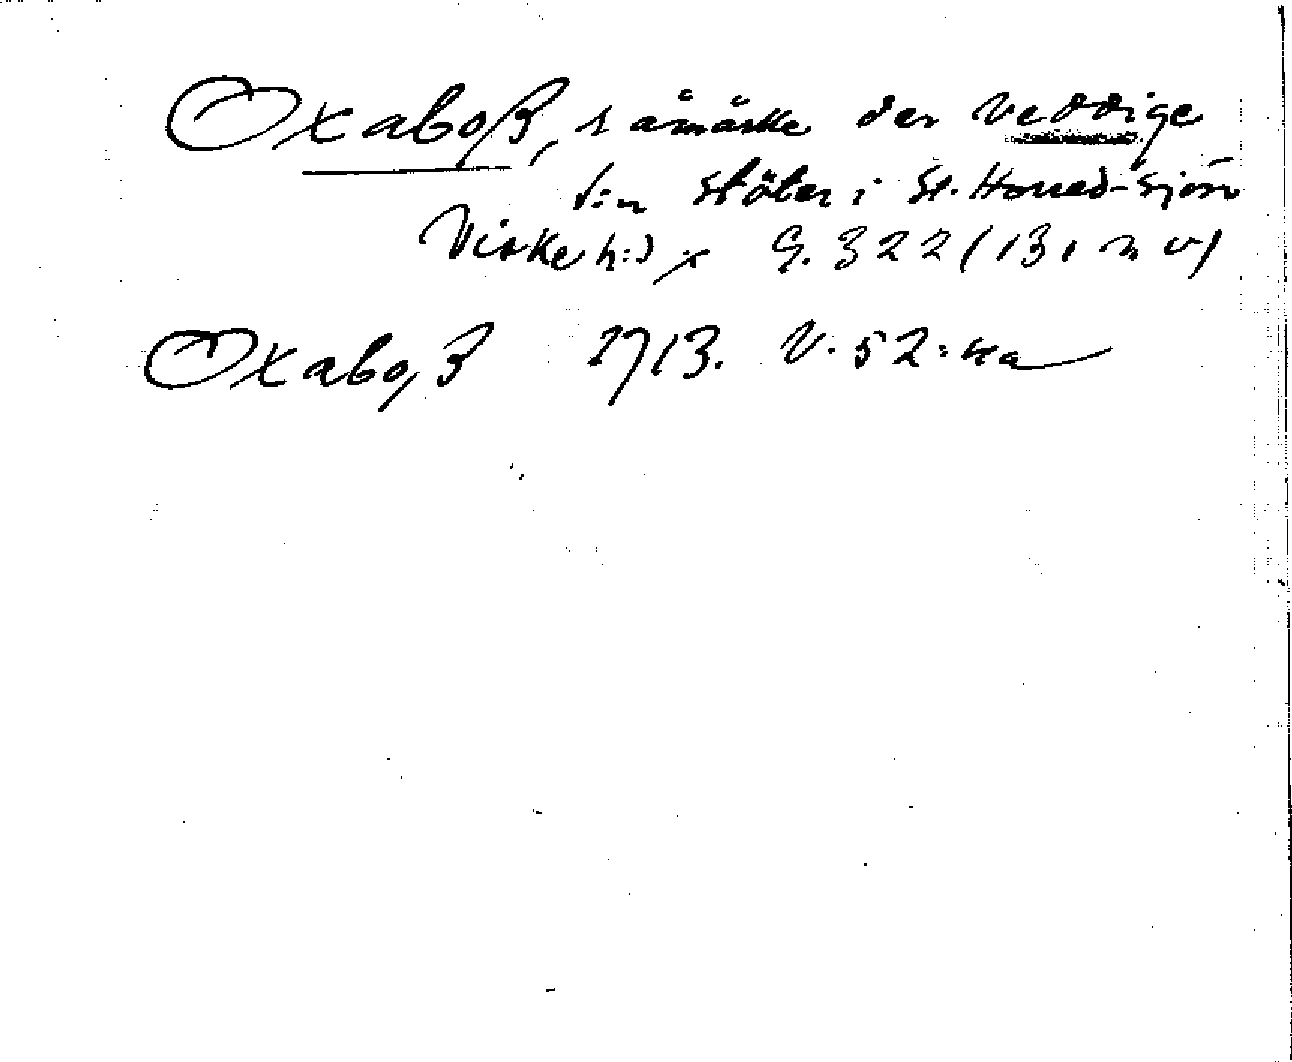 Oxabo, 3, 1 åmärke der Veddige
s:n stöter i St. Horred-sjön
Viske h:d x G. 322 (131 n v)
Oxabo, 3 1713. V. 52:na